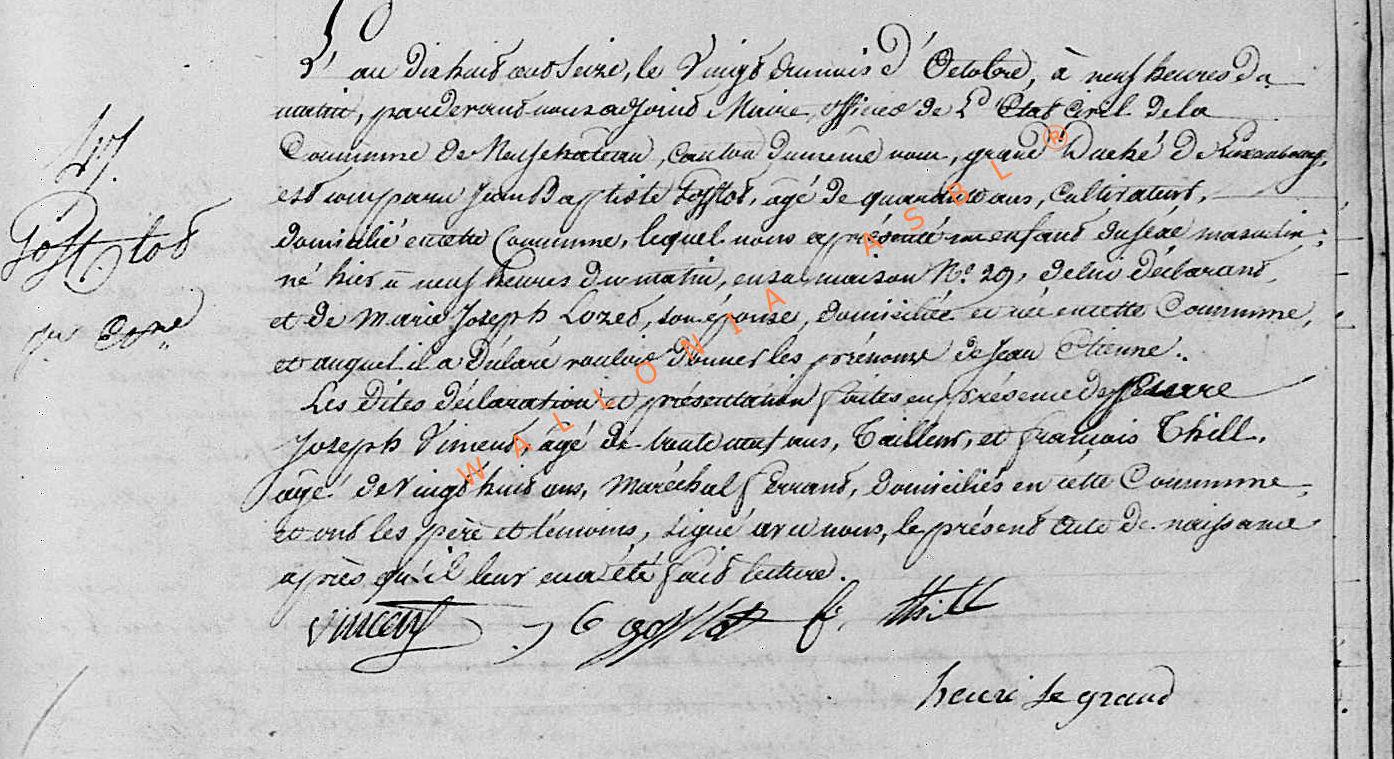 L'an dix huit cent seize, le vingt du mois d'Octobre, à neuf heures du
matin, pardevant nous adjoint Maire, officier de L'Etat Civil de la
Commune de Neufchateau, canton du même nom, grand Duché de Luxembourg,
est comparu Jean Baptiste Gofflot, agé de quarante ans, Cultivateur,
domicilié en cette Commune, lequel nous a présenté un enfant du séxe masculin,
né hier à neuf heures du matin, en sa maison N.o 29, de lui déclarant,
et de Marie Joseph Lozet, son épouse, domiciliée et née en cette Commune,
et auquel il a Déclaré vouloir donner les prénoms de Jean Etienne.
Les dites déclaration et présentation faites en présence de Pierre
Joseph Vincent, âgé de trente neuf ans, Tailleur, et françois Thill,
âgé de vingt huit ans, Maréchal ferrant, domiciliés en cette Commune,
et ont les père et témoins, signé avec nous, le présent acte de naissance
après qu'il leur en a été fait lecture.
Vincent j b gofflot f. thill
henri le grand
Gofflot
jn Etne
WALLONIA ASBL ®